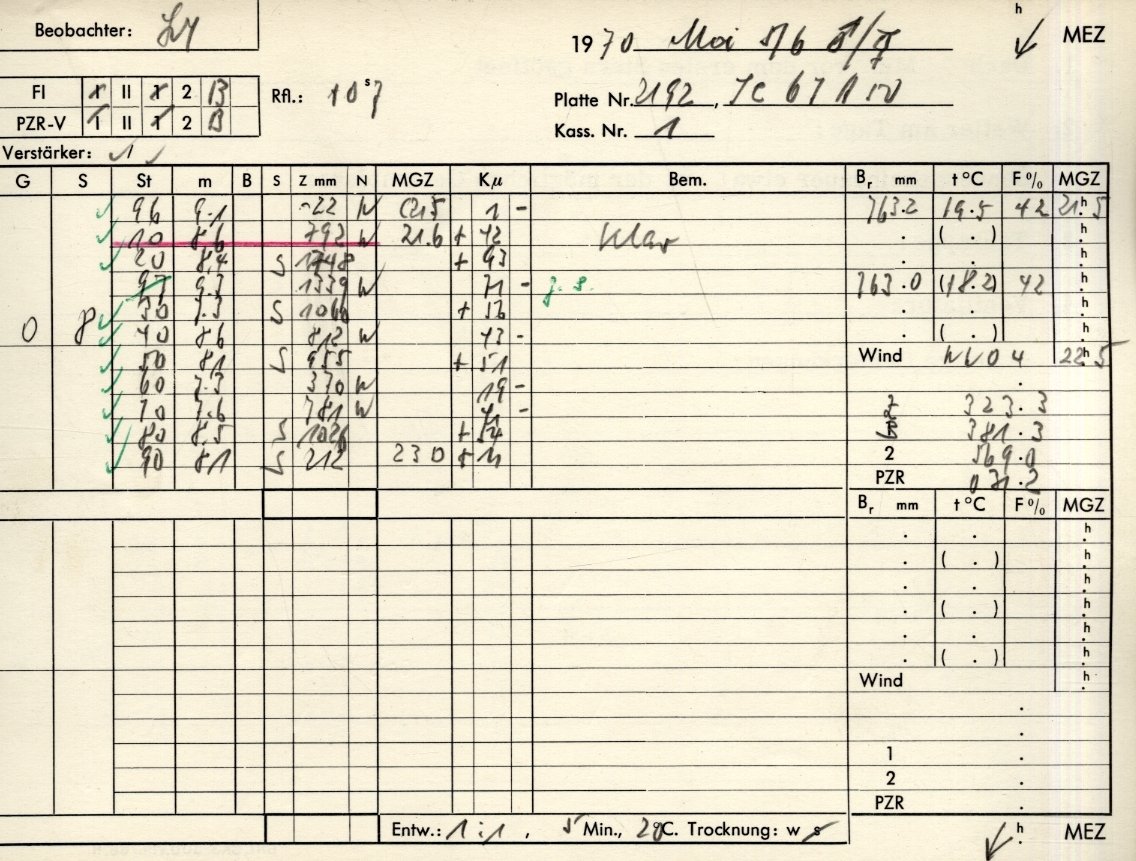 Beobachter:
1970 Mai 5/6
h MEZ
FI I II 1 2 B
Rfl.: 10 s 7
Platte Nr. 2192,
PZR-V I II 1 2 B
Kass. Nr. 1
Verstärker: 1
G S St m B S Z mm N MGZ Kμ Bem. Br mm t°C F% MGZ
96 9.1 -22 N 21.5 1 - 763.2 19.5 42 21.h5
10 8.6 792 N 21.6 + 42 klar ( . ) h
20 8.4 S 1748 + 93 . . h
97 9.3 1339 N 71 - 763.0 (18.2) 42 h
30 7.3 S 1066 + 56 . . h
0 8 40 8.6 812 N 43 - . ( . ) h
50 8.1 S 955 + 51 Wind NNO 4 22.h5
60 7.3 370 N 19 - .
70 7.6 781 N 41 - 323.3
80 8.5 S 1026 + 54 381.3
90 8.1 S 212 230 + 11 2 569.0
PZR 031.2
Br mm t°C F% MGZ
. . h
. ( . ) h
. . h
. ( . ) h
. . h
. ( . ) h
Wind h
.
.
1 .
2 .
PZR .
Entw.: 1:1, 5 Min., 20°C. Trocknung: w s
h MEZ